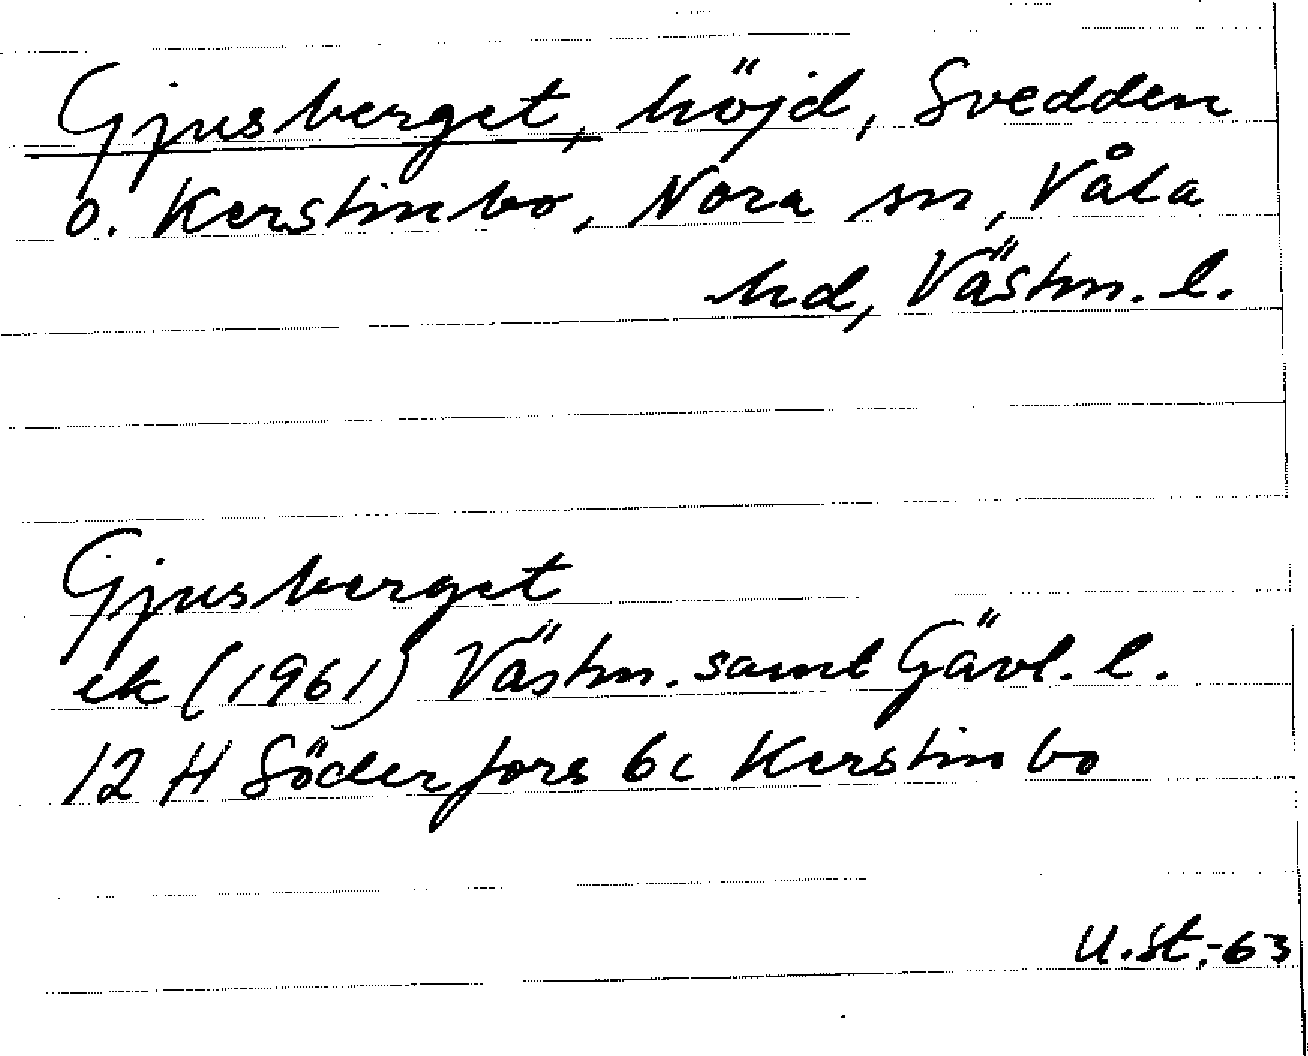 Gjusberget, höjd, Svedden
o. Kerstinbo, Nora sn, Våla
hd, Västm. l.
Gjusberget
ek (1961) Västm. samt Gävl. l.
12 H Söderfors 6c Kerstinbo
U.St.-63